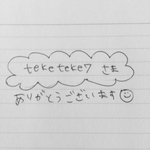 teketeke7 さま
ありがとうございます